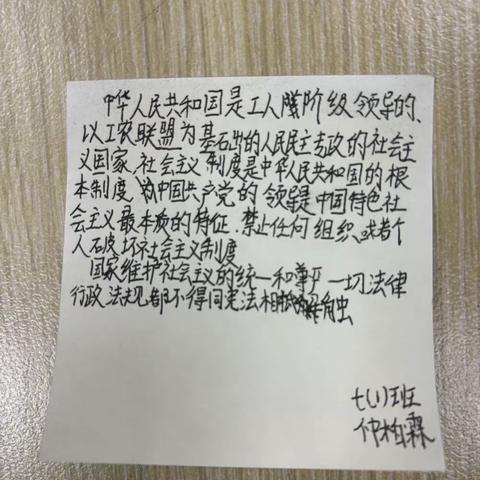 中华人民共和国是工人阶级领导的、
以工农联盟为基础的人民民主专政的社会主
义国家、社会主义制度是中华人民共和国的根
本制度、中国共产党的领导是中国特色社
会主义最本质的特征.禁止任何组织或者个
人破坏社会主义制度
国家维护社会主义的统一和尊严一切法律
行政法规都不得同宪法相抵触
七(1)班
仲柏霖